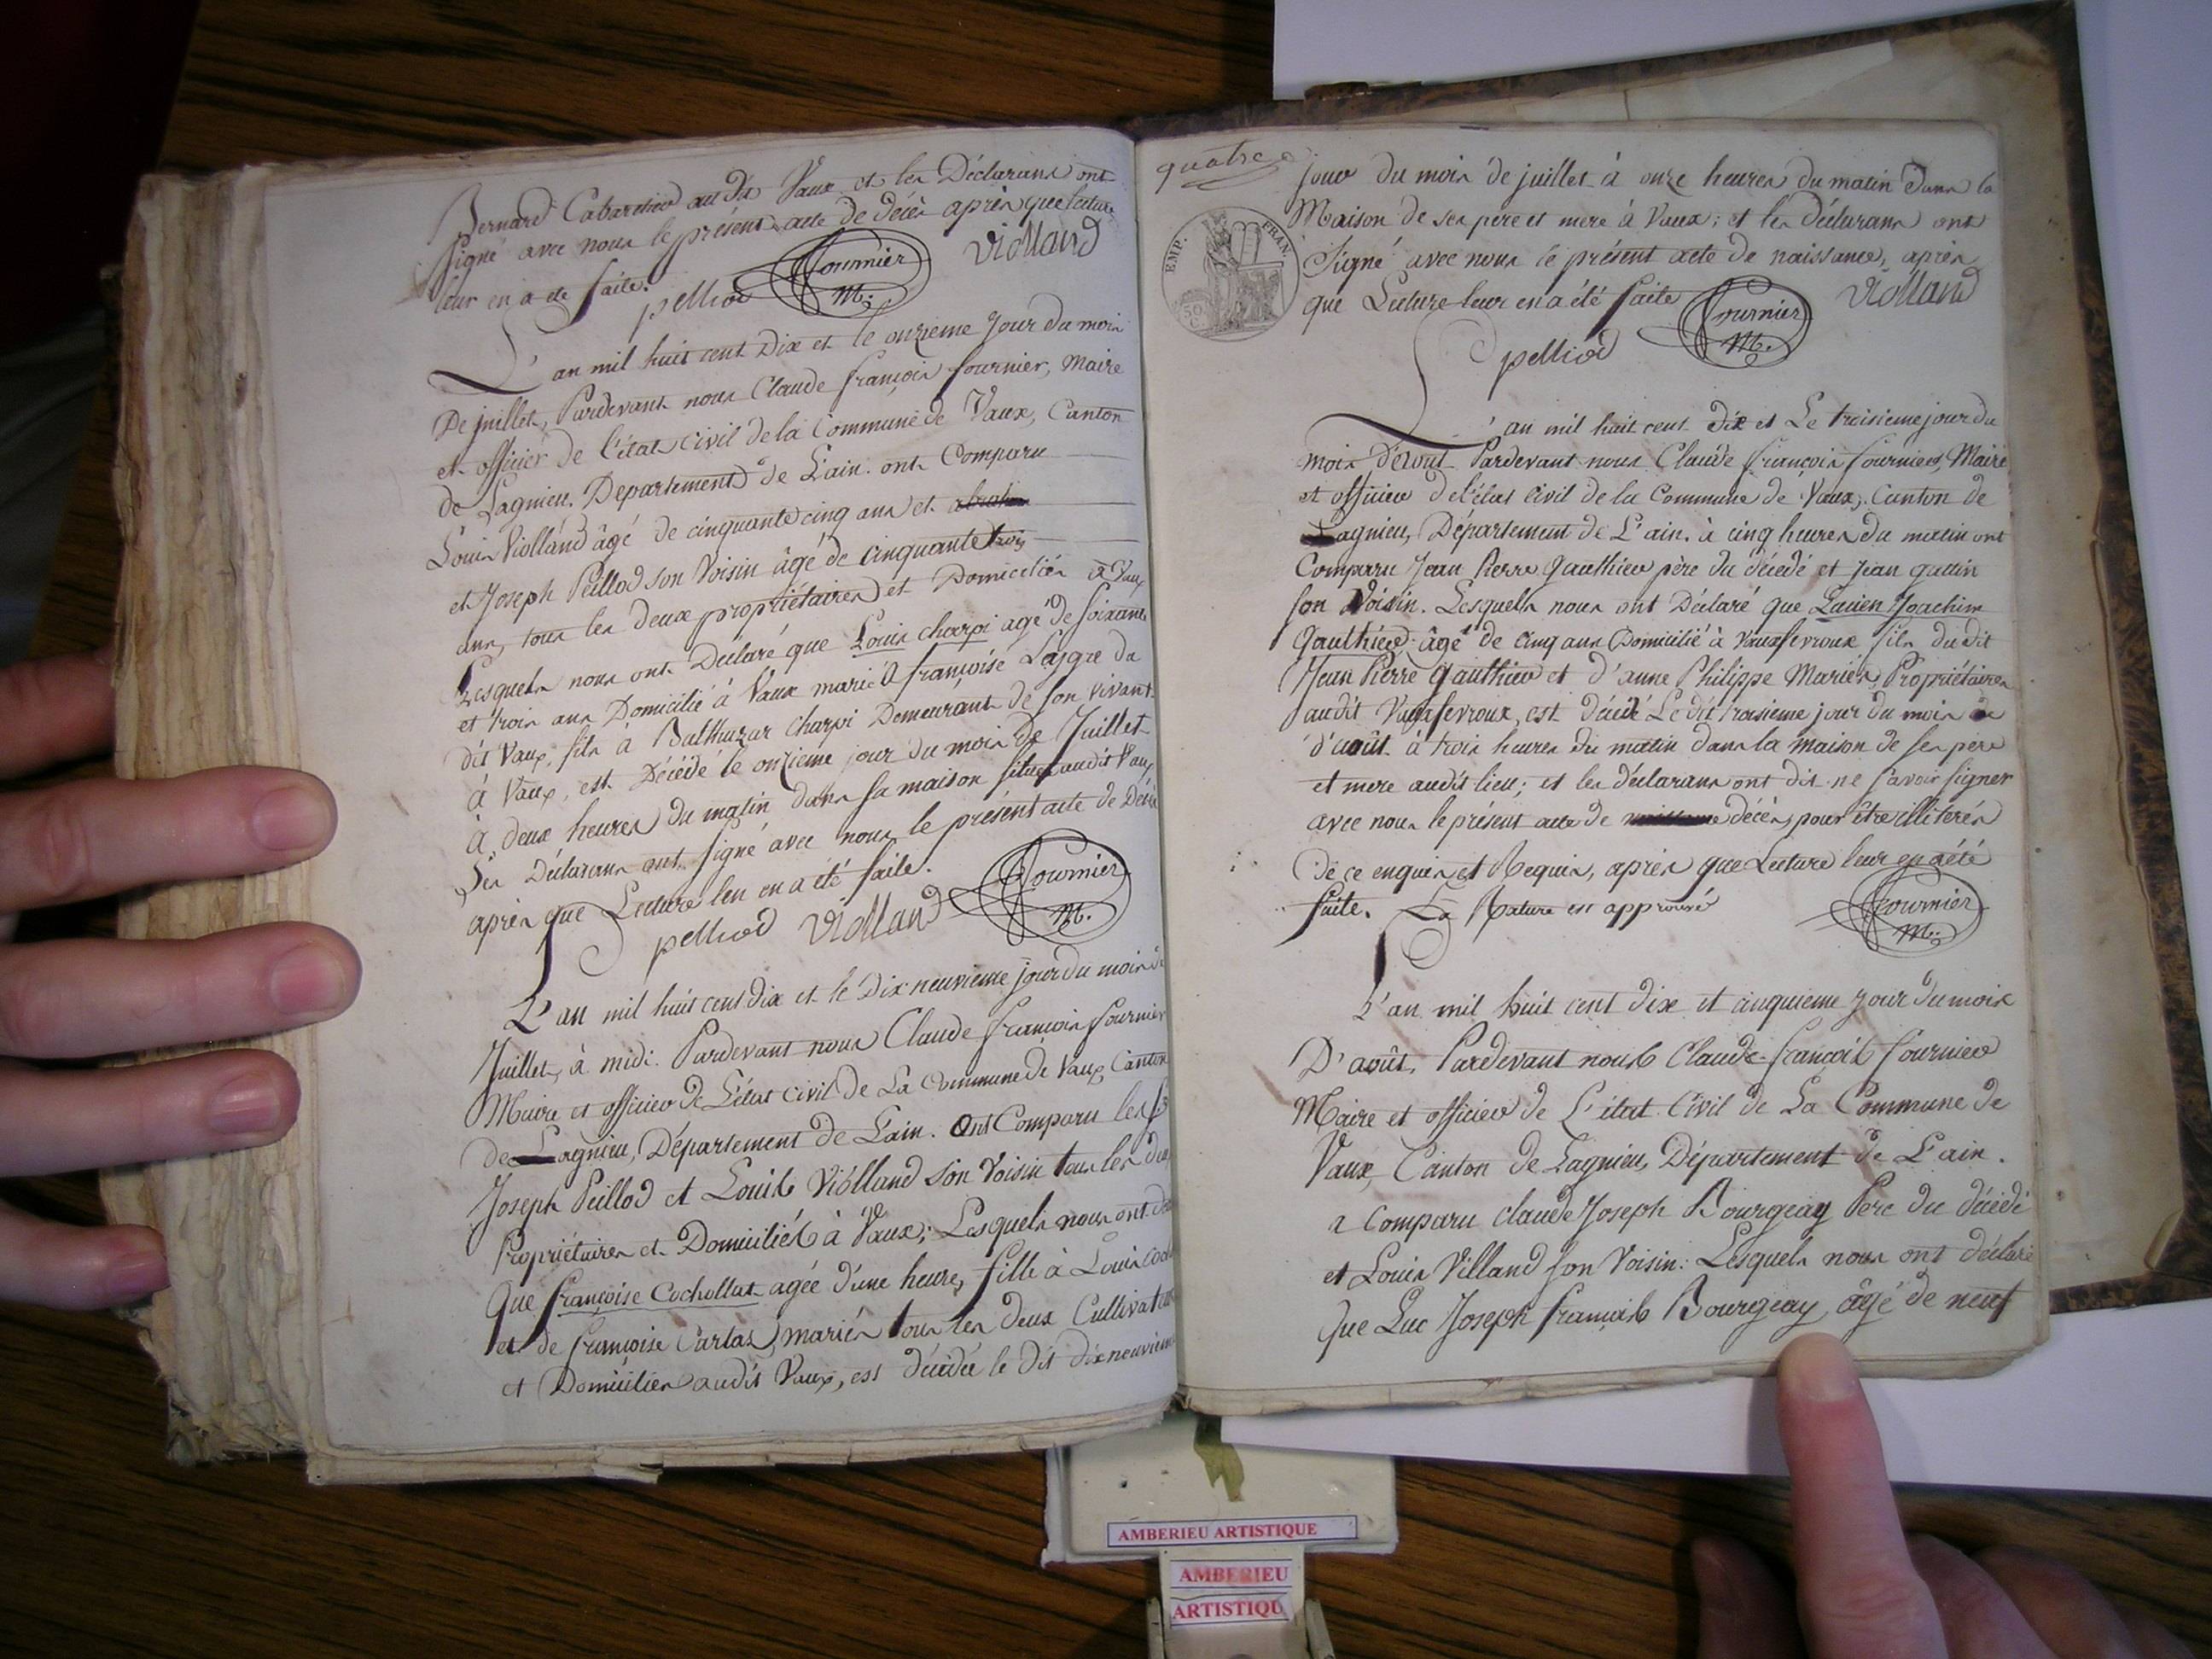 Bernard Cabaretier au dit Vaux et les Déclarans ont
signé avec nous le présent acte de décès après que lecture
leur en a ete faite.
pelliod Fournier M. Violland
L'an mil huit cent Dix et le onzieme jour du mois
De juillet, Pardevant nous Claude françois fournier, Maire
et officier de l'état civil de la Commune de Vaux, Canton
de Lagnieu. Departement de L'ain. ont Comparu
Louis Violland âgé de cinquante cinq ans et
et Joseph Peillod son Voisin âgé de cinquante trois
ans, tous les deux propriétaires et Domiciliés à Vaux
Lesquels nous ont Declaré que Louis charpi agé de soixante
et trois ans Domicilié à Vaux marié à françoise du
dit Vaux, fils à Balthazar charpi Demeurant de son vivant
à Vaux, est Décédé le onzieme jour du mois de Juillet
à deux heures du matin dans sa maison située audit Vaux
Les Déclarans ont signé avec nous le présent acte de Décès
après que Lecture leu en a été faite.
pelliod Violland Fournier M.
L'an mil huit cent dix et le Dix neuvieme jour du mois de
Juillet, à midi. Pardevant nous Claude françois fournier
Maire et officier de L'état civil de La Commune de Vaux Canton
de Lagnieu, Département de L'ain. Ont Comparu les
Joseph Peillod et Louis Violland son Voisin tous les deux
Propriétaires et Domiciliés à Vaux; Lesquels nous ont
Que françoise Cochollat agée d'une heure, fille à Louis
et de françoise Carlas mariés tous les deux Cultivateurs
et Domiciliés audit Vaux, est décédée le dit dix neuvieme
quatre
jour du mois de juillet à onze heures du matin dans la
Maison de ses pere et mere à Vaux; et les déclarans ont
Signé avec nous le présent acte de naissance, après
que Lecture leur en a été faite
EMP. FRAN.
50 C
pelliod Fournier M. Violland
L'an mil huit cent dix et Le troisieme jour du
mois d'aout Pardevant nous Claude françois fournier, Maire
et officier de l'état civil de la Commune de Vaux, Canton de
Lagnieu, Département de L'ain. à cinq heures du matin ont
Comparu Jean Pierre Gauthier père du décédé et Jean
son Voisin. Lesquels nous ont Déclaré que Lucien Joachim
Gauthier âgé de cinq ans Domicilié à Vauxfevroux fils du dit
Jean Pierre Gauthier et d'anne Philippe Mariés, Propriétaires
audit Vauxfevroux, est décédé Le dit troisieme jour du mois de
d'août à trois heures du matin dans la maison de ses père
et mere audit lieu; et les déclarans ont dit ne savoir signer
avec nous le présent acte de décès pour être illiterés
de ce enquis et Requis, après que Lecture leur en a été
faite. La Rature est approuvé
Fournier M.
L'an mil huit cent dix et cinquieme jour du mois
D'août. Pardevant nous Claude françois fournier
Maire et officier de L'état Civil de La Commune de
Vaux, Canton de Lagnieu, Département de L'ain.
a Comparu claude Joseph Bourgeay Pere du décédé
et Louis Villand son Voisin: Lesquels nous ont déclaré
Que Luc Joseph françois Bourgeay, âgé de neuf
AMBERIEU ARTISTIQUE
AMBERIEU
ARTISTIQU